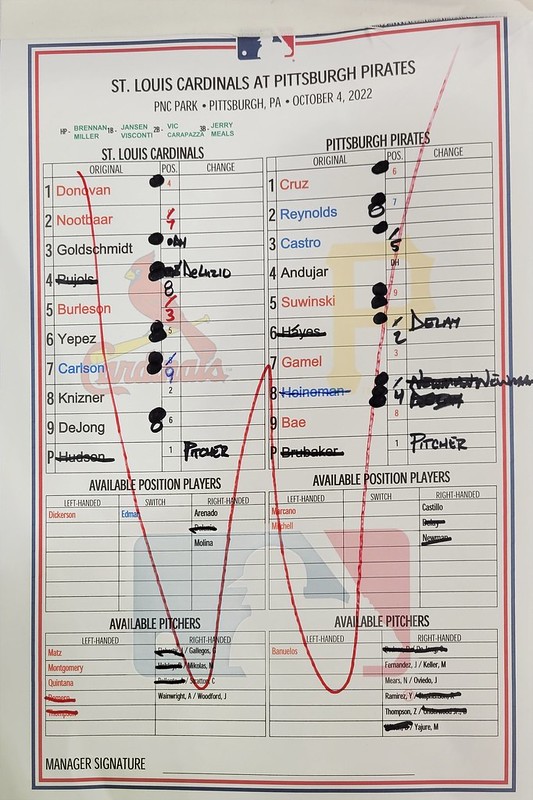 ST. LOUIS CARDINALS AT PITTSBURGH PIRATES
PNC PARK • PITTSBURGH, PA • OCTOBER 4, 2022
HP - BRENNAN MILLER 1B - JANSEN VISCONTI 2B - VIC CARAPAZZA 3B - JERRY MEALS
ST. LOUIS CARDINALS
ORIGINAL POS. CHANGE
1 Donovan 4
2 Nootbaar 7
3 Goldschmidt DH
4 Pujols 8 DeLuzio
5 Burleson 3
6 Yepez 5
7 Carlson 9
8 Knizner 2
9 DeJong 6
P Hudson 1 PITCHER
PITTSBURGH PIRATES
ORIGINAL POS. CHANGE
1 Cruz 6
2 Reynolds 7
3 Castro 5
4 Andujar DH
5 Suwinski 9
6 Hayes 2 DELAY
7 Gamel 3
8 Heineman 4 NEWMAN NEWMAN
9 Bae 8
P Brubaker 1 PITCHER
AVAILABLE POSITION PLAYERS
LEFT-HANDED SWITCH RIGHT-HANDED
Dickerson Edman Arenado
Molina
AVAILABLE POSITION PLAYERS
LEFT-HANDED SWITCH RIGHT-HANDED
Marcano Castillo
Mitchell Delay
Newman
AVAILABLE PITCHERS
LEFT-HANDED RIGHT-HANDED
Matz / Gallegos, G
Montgomery / Mikolas, M
Quintana / Stratton, C
Romero Wainwright, A / Woodford, J
Thompson
AVAILABLE PITCHERS
LEFT-HANDED RIGHT-HANDED
Banuelos
Fernandez, J / Keller, M
Mears, N / Oviedo, J
Ramirez, Y /
Thompson, Z / Underwood Jr., D
/ Yajure, M
MANAGER SIGNATURE